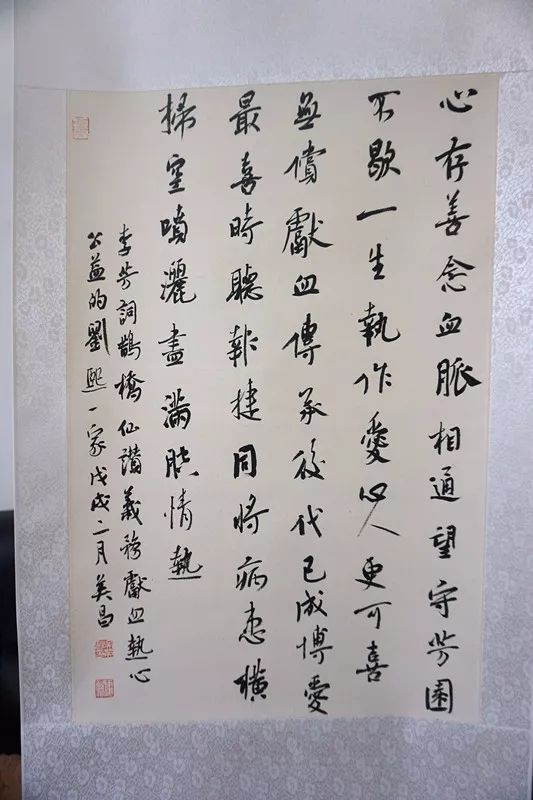 心存善念血脈相通望守芳園
不歇一生執作愛心人更可喜
無償獻血傳承後代已成博愛
最喜時聽報捷同將病患橫
掃空噴灑盡滿腔情熱
李芳詞鵲橋仙讚義務獻血熱心
公益的劉熙一家戊戌二月昌